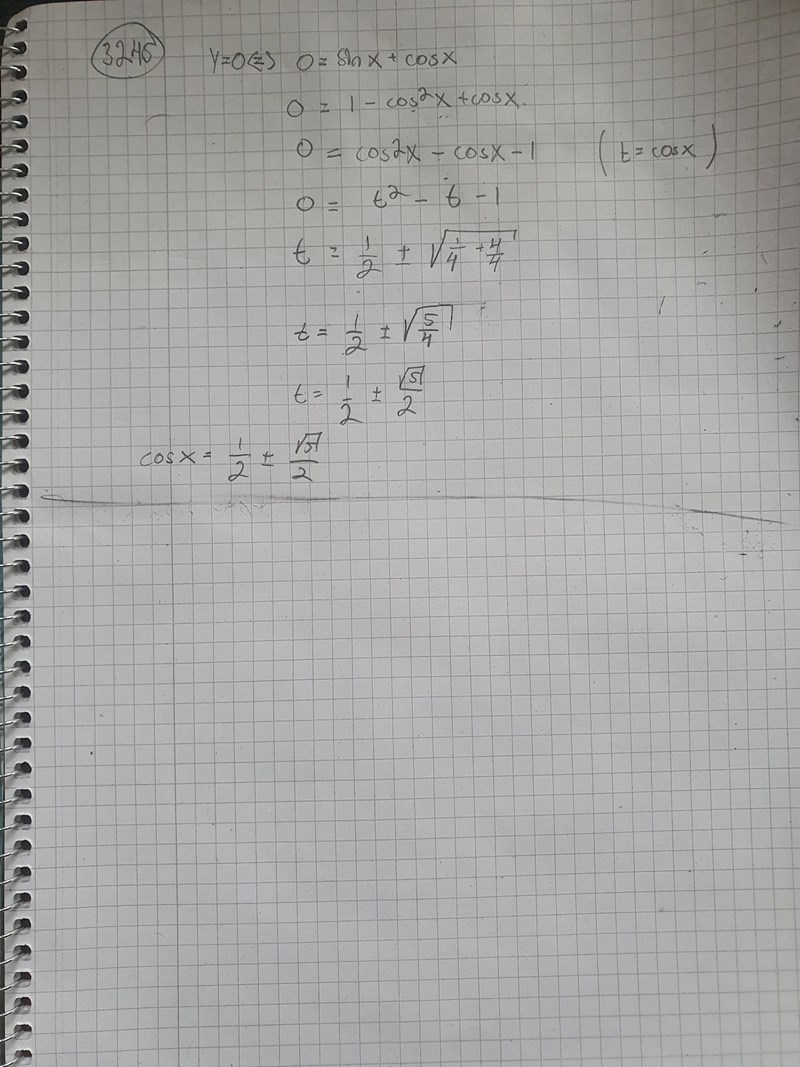 3246 y=0(=) 0 = sinx + cosx
0 = 1 - cos²x + cosx
0 = cos²x - cosx - 1 (t = cosx)
0 = t² - t - 1
t = 1/2 ± √(1/4 + 4/4)
t = 1/2 ± √(5/4)
t = 1/2 ± √5/2
cosx = 1/2 ± √5/2